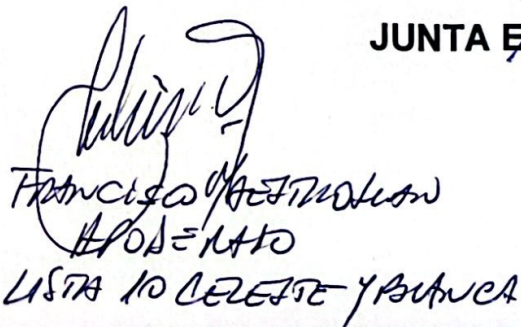 JUNTA E
FRANCISCO
APODERADO
LISTA 10 CELESTE Y BLANCA